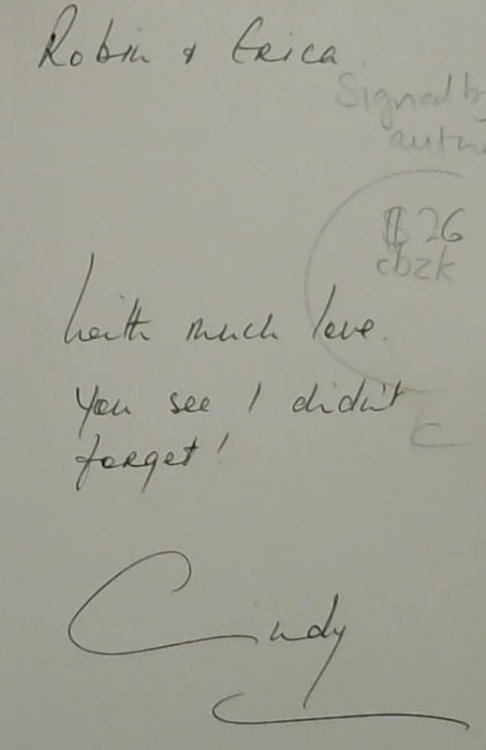 Robin & Erica
Signed by
$26
cbzk
With much love.
You see I didn't
forget!
Cindy